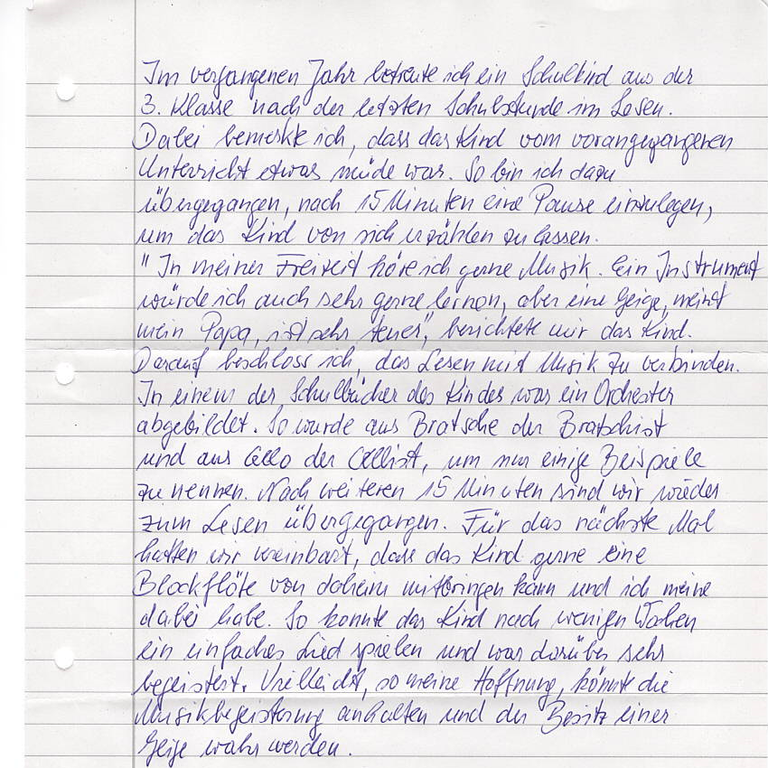 Im vergangenen Jahr betreute ich ein Schulkind aus der
3. Klasse nach der letzten Schulstunde im Lesen.
Dabei bemerkte ich, dass das Kind vom vorangegangenen
Unterricht etwas müde war. So bin ich dazu
übergegangen, nach 15 Minuten eine Pause einzulegen,
um das Kind von sich erzählen zu lassen.
"In meiner Freizeit höre ich gerne Musik. Ein Instrument
würde ich auch sehr gerne lernen, aber eine Geige, meint
mein Papa, ist sehr teuer", berichtete mir das Kind.
Darauf beschloss ich, das Lesen mit Musik zu verbinden.
In einem der Schulbücher des Kindes war ein Orchester
abgebildet. So wurde aus Bratsche der Bratschist
und aus Cello der Cellist, um nur einige Beispiele
zu nennen. Nach weiteren 15 Minuten sind wir wieder
zum Lesen übergegangen. Für das nächste Mal
hatten wir vereinbart, dass das Kind gerne eine
Blockflöte von daheim mitbringen kann und ich meine
dabei habe. So konnte das Kind nach wenigen Wochen
ein einfaches Lied spielen und war darüber sehr
begeistert. Vielleicht, so meine Hoffnung, könnte die
Musikbegeisterung anhalten und der Besitz einer
Geige wahr werden.